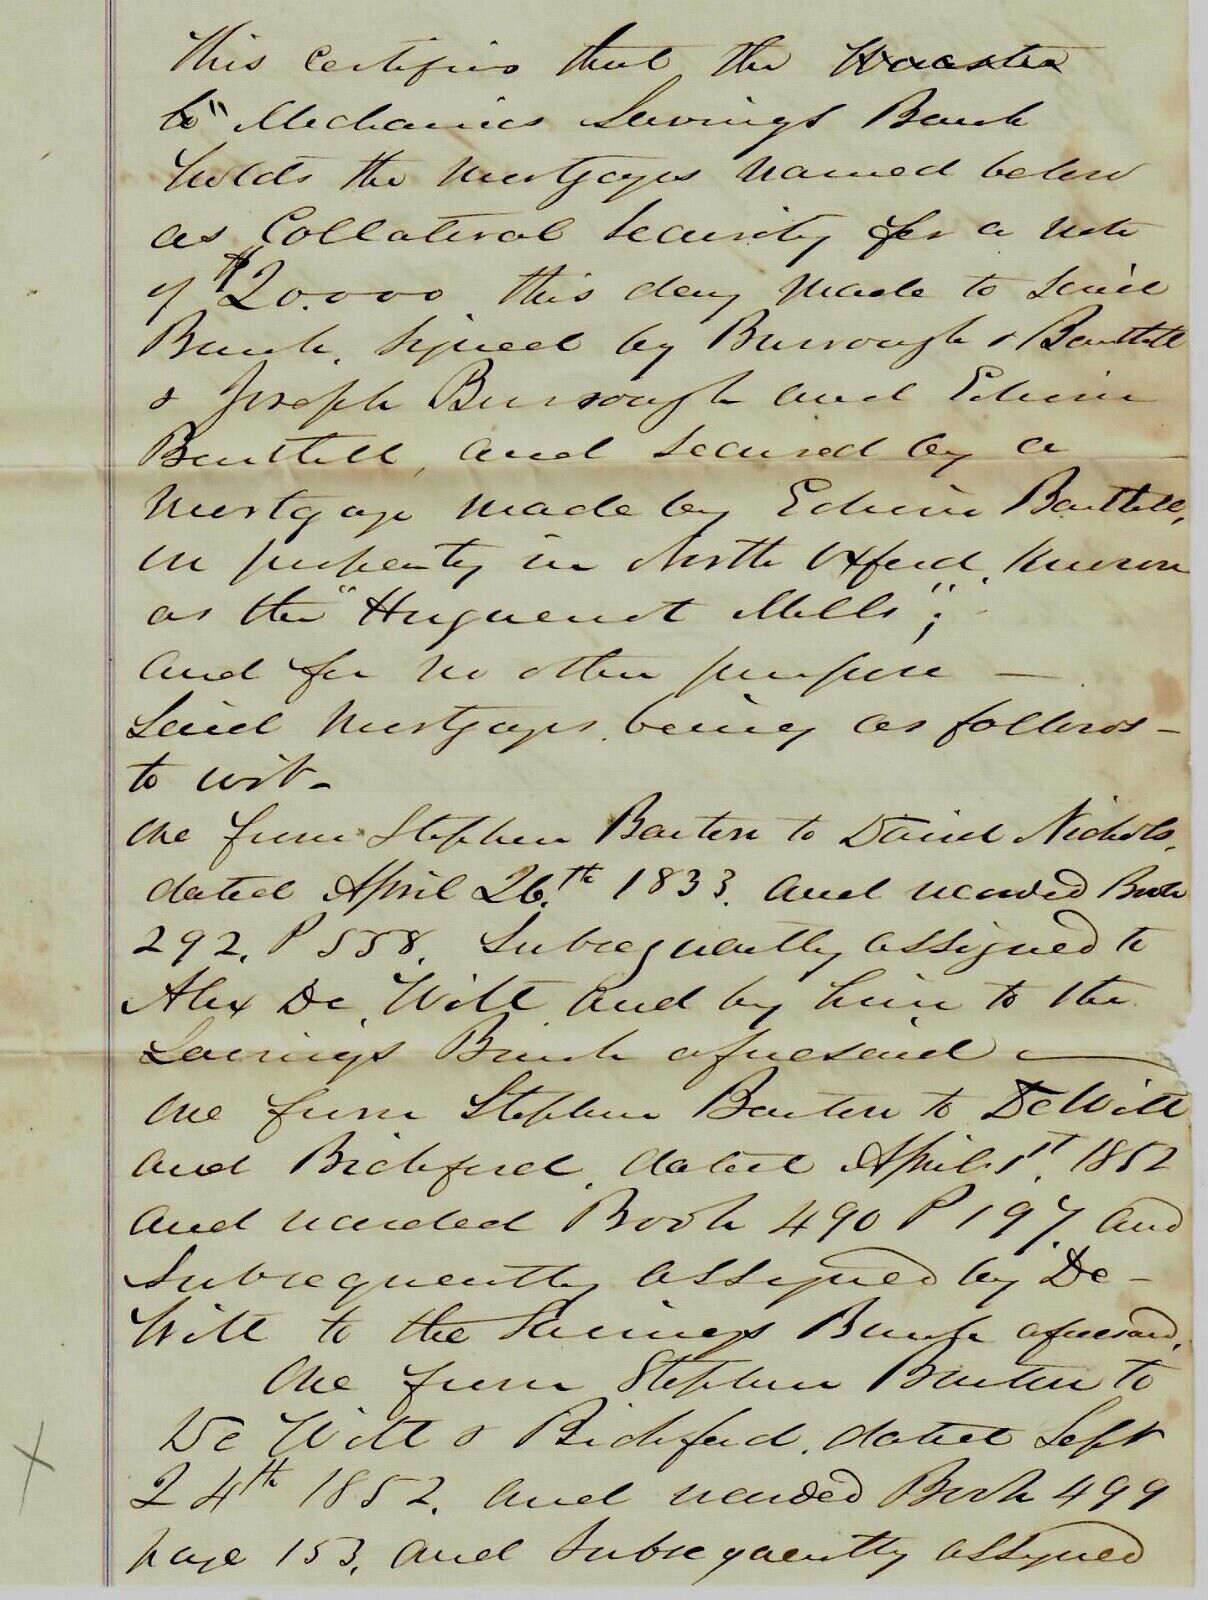 This certifies that the Worcester
Co" Mechanics Savings Bank
holds the Mortgages named below
as Collateral Security for a Note
of $20.000 this day made to said
Bank. signed by Burrough & Bartlett
& Joseph Burrough and Edwin
Bartlett, and secured by a
Mortgage made by Edwin Bartlett,
on property in North Oxford, known
as the "Huguenot Mills";
and for no other purpose —
Said Mortgages being as follows –
to wit –
One from Stephen Barton to David Nichols,
dated April 26th 1833. and recorded Book
292. P 558. Subsequently assigned to
Alex De Witt and by him to the
Savings Bank aforesaid —
One from Stephen Barton to De Witt
and Bickford, dated April 1st 1852
and recorded Book 490 P 197. and
Subsequently assigned by De –
Witt to the Savings Bank aforesaid.
One from Stephen Barton to
De Witt & Bickford. dated Sept
24th 1852. and recorded Book 499
page 153. and Subsequently assigned